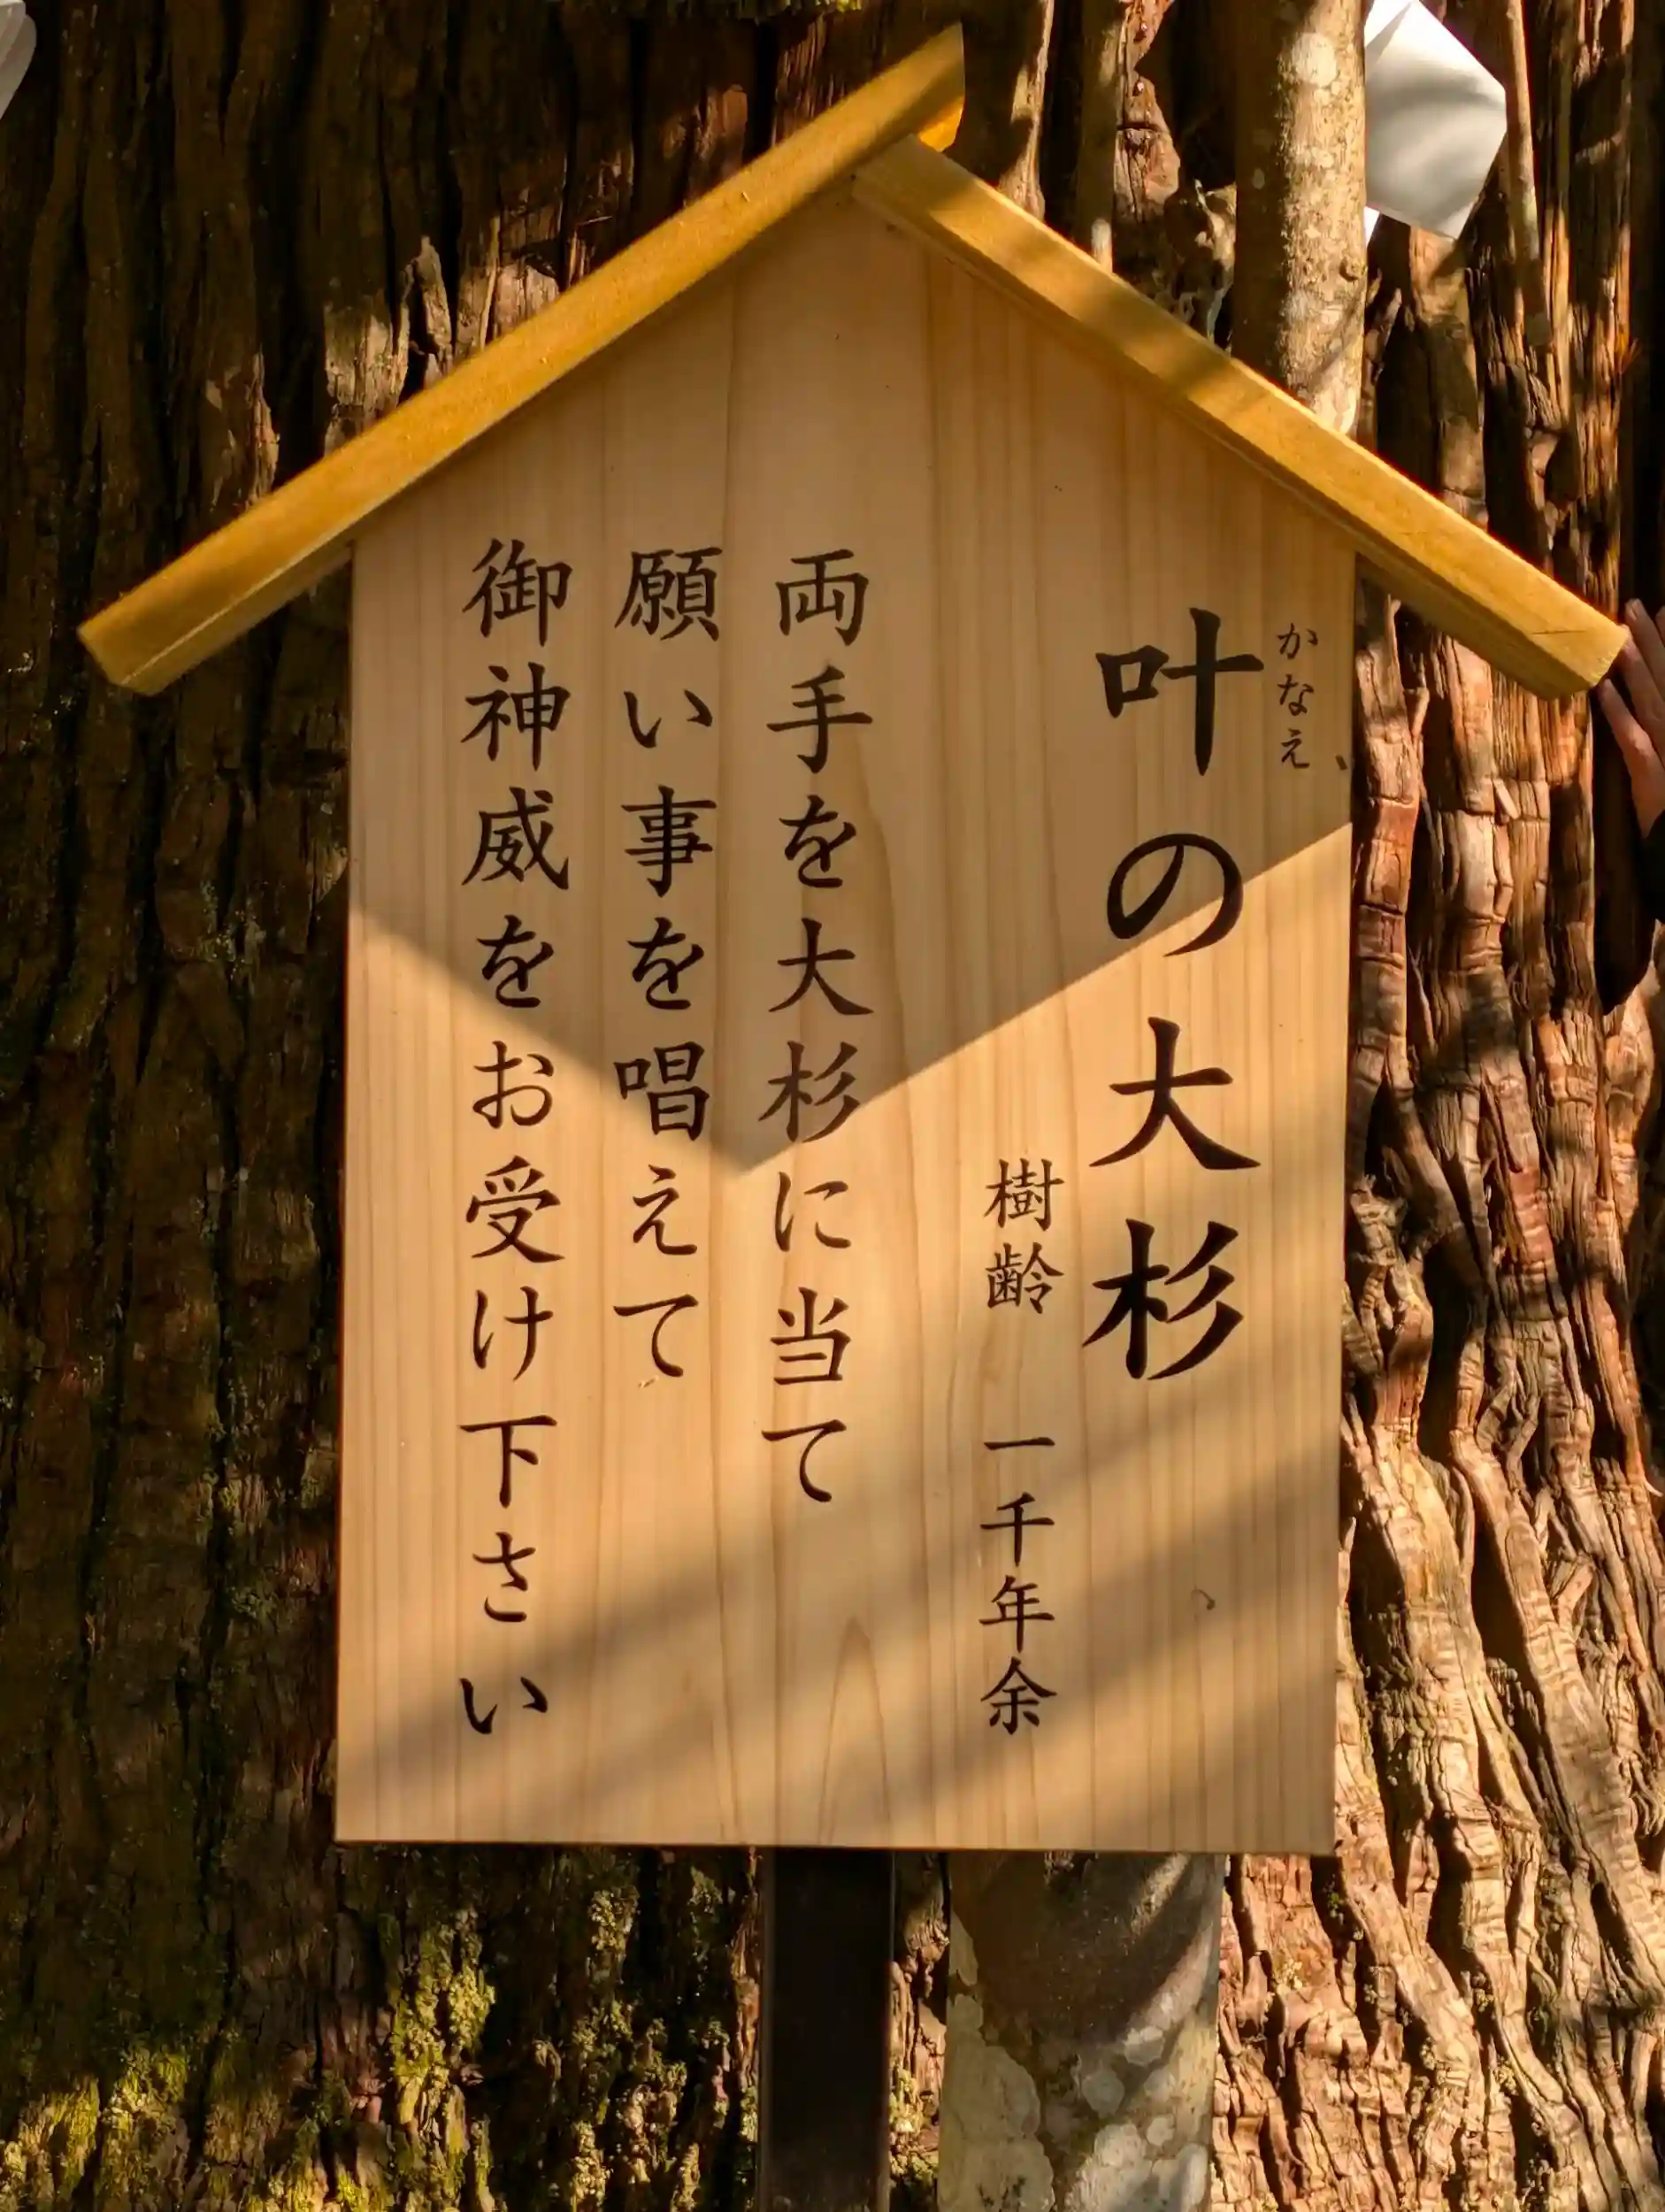 かなえ
叶の大杉
樹齢 一千年余
両手を大杉に当て
願い事を唱えて
御神威をお受け下さい